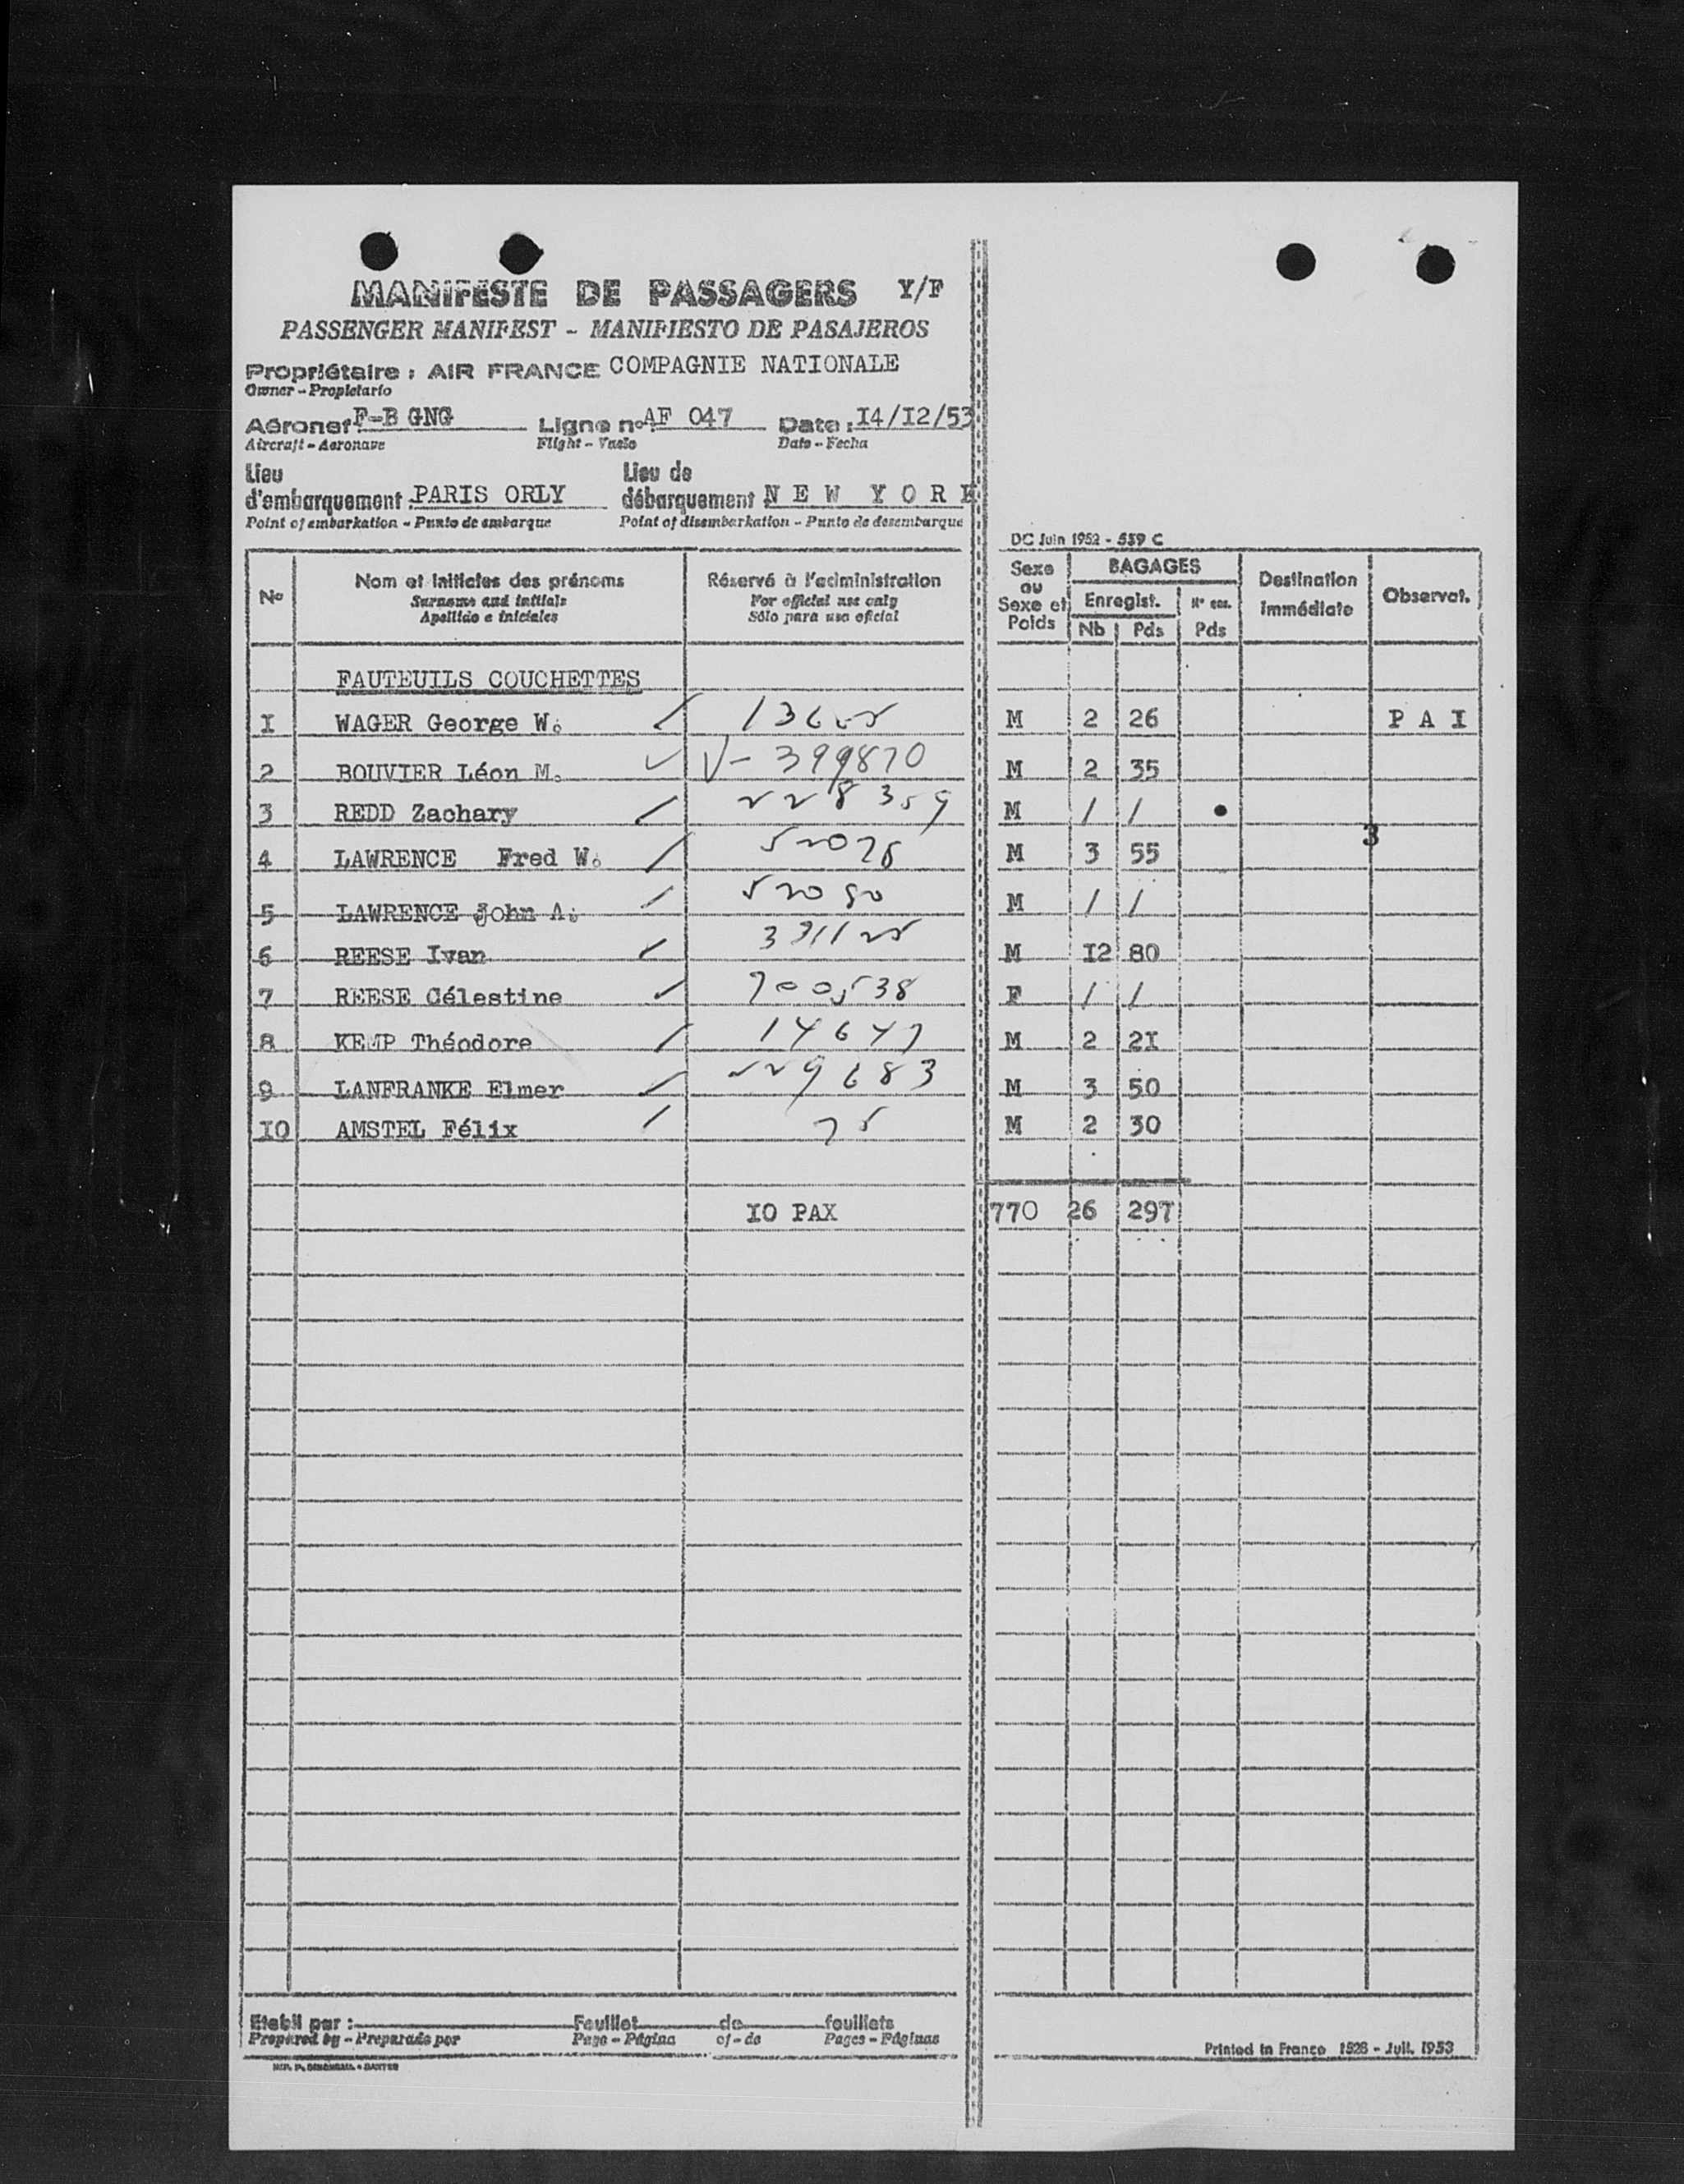 MANIFESTE DE PASSAGERS Y/F
PASSENGER MANIFEST - MANIFIESTO DE PASAJEROS
Propriétaire : AIR FRANCE COMPAGNIE NATIONALE
Owner - Propietario
Aéronef F-B GNG Ligne nº AF 047 Date : I4/I2/53
Aircraft - Aeronave Flight - Vuelo Date - Fecha
Lieu d'embarquement : PARIS ORLY Lieu de débarquement N E W Y O R K
Point of embarkation - Punto de embarque Point of disembarkation - Punto de desembarque
DC Juin 1952 - 539 C
Nº Nom et initiales des prénoms Réservé à l'administration Sexe ou Sexe et Poids BAGAGES Destination immédiate Observat.
Surname and initials For official use only Enregist.
Apellido e iniciales Sólo para uso oficial Nb Pds Pds
FAUTEUILS COUCHETTES
I WAGER George W. M 2 26 P A I
2 BOUVIER Léon M. V- 399870 M 2 35
3 REDD Zachary 228359 M / /
3
4 LAWRENCE Fred W. M 3 55
5 LAWRENCE John A. 52080 M / /
6 REESE Ivan M I2 80
7 REESE Célestine 700538 F / /
8 KEMP Théodore 14647 M 2 2I
9 LANFRANKE Elmer 229683 M 3 50
IO AMSTEL Félix 75 M 2 30
IO PAX 770 26 297
Etabli par : Feuillet de feuillets
Prepared by - Preparado por Page - Página of - de Pages - Páginas
Printed in France 1528 - Juil. 1953